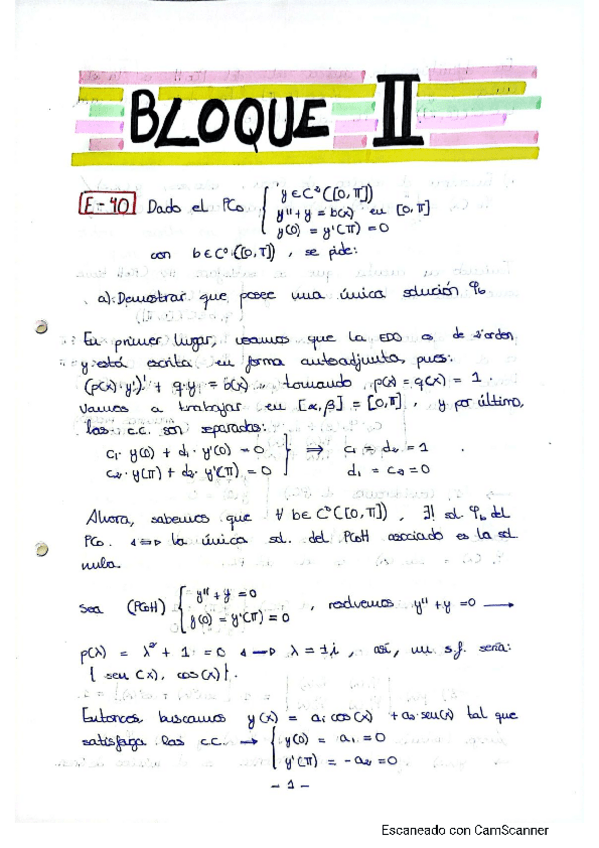 BLOQUE II
E-40 Dado el PCo { y ∈ C²([0,π])
y'' + y = b(x) en [0,π]
y(0) = y'(π) = 0
con b ∈ C⁰([0,π]), se pide:
a) Demostrar que posee una única solución φb
En primer lugar, veamos que la EDO es de 2º orden
y está escrita en forma autoadjunta, pues:
(p(x)·y')' + q·y = b(x), tomando p(x) = q(x) = 1.
Vamos a trabajar en [α,β] = [0,π], y por último,
las c.c. son separadas:
c₁·y(0) + d₁·y'(0) = 0
c₂·y(π) + d₂·y'(π) = 0 } ⇒ c₁ = d₂ = 1
d₁ = c₂ = 0
Ahora, sabemos que ∀ b ∈ C⁰([0,π]), ∃! sol. φb del
PCo. ⇔ la única sol. del PCoH asociado es la sol
nula.
Sea (PCoH) { y'' + y = 0
y(0) = y'(π) = 0 , resolvemos y'' + y = 0 →
p(λ) = λ² + 1 = 0 ↔ λ = ±i, así, un s.f. sería:
{ sen(x), cos(x) }.
Entonces buscamos y(x) = a₁cos(x) + a₂sen(x) tal que
satisfaga las c.c. → { y(0) = a₁ = 0
y'(π) = -a₂ = 0
- 1 -
Escaneado con CamScanner